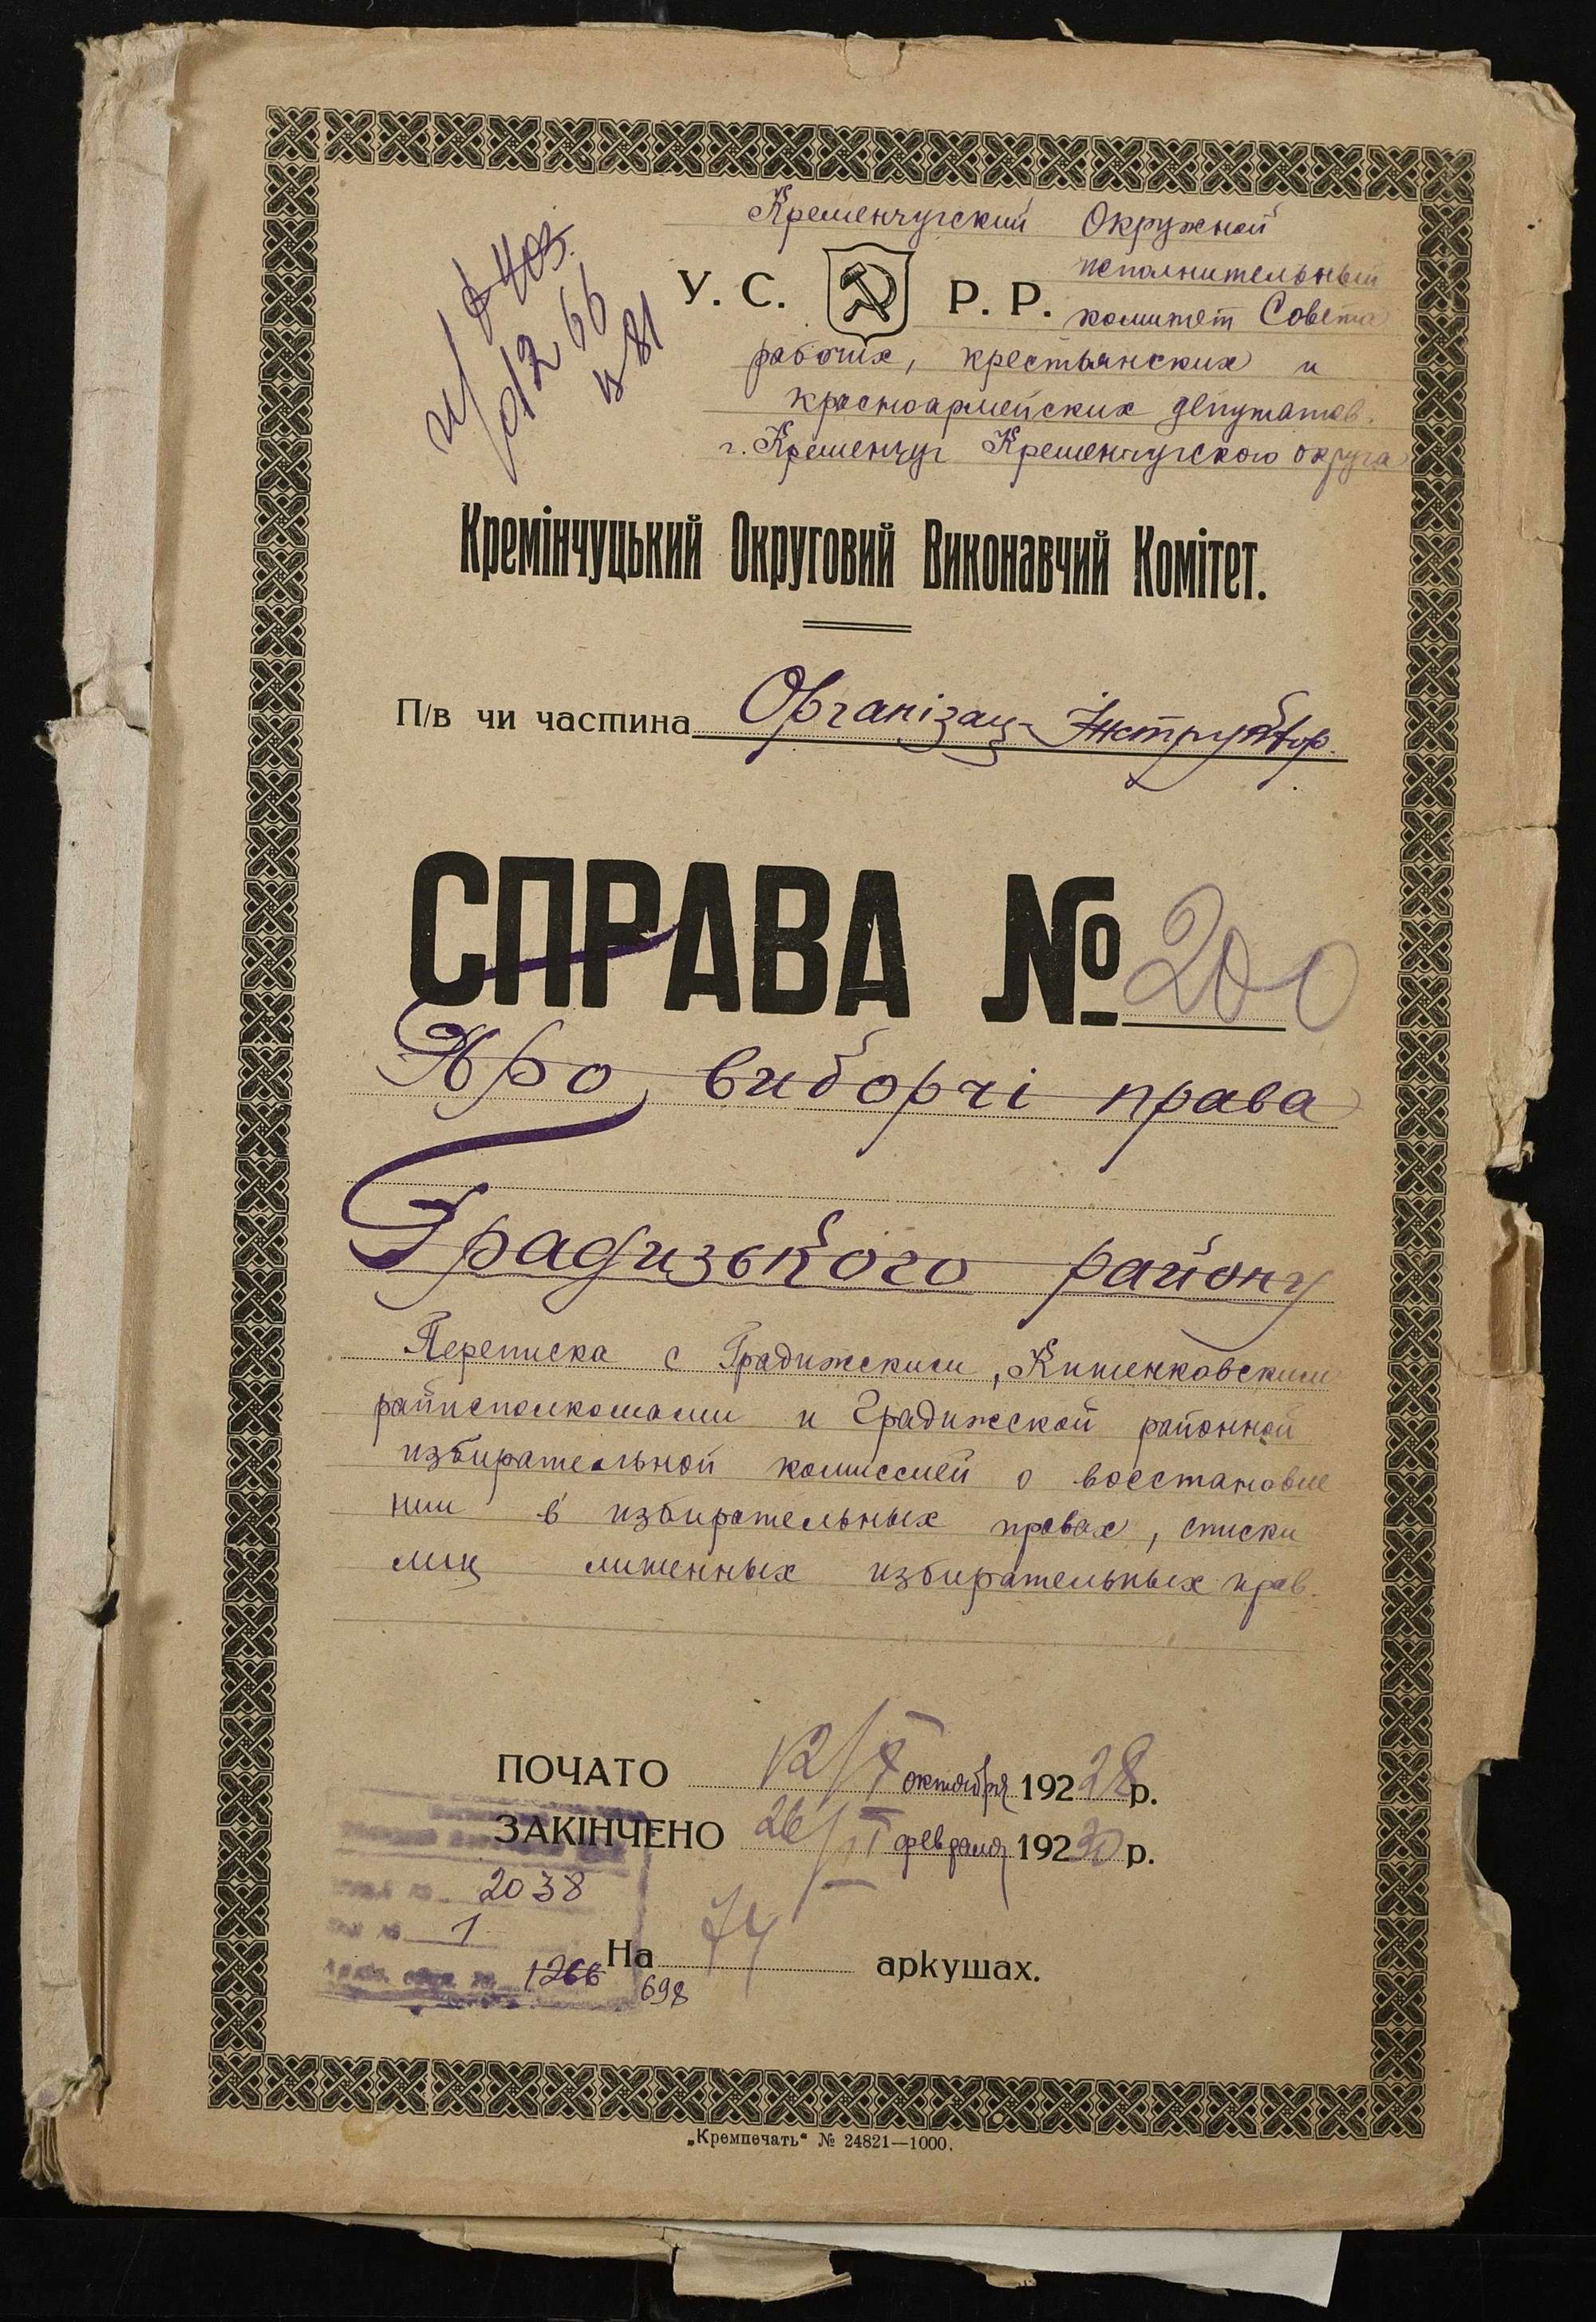 Кременчугский Окружной
исполнительный
У. С. Р. Р.
комитет Совета
рабочих, крестьянских и
красноармейских депутатов.
г. Кременчуг Кременчугского округа
1266
Кремінчуцький Округовий Виконавчий Комітет.
П/в чи частина Організац-Інструктор.
СПРАВА № 200
Про виборчі права
Градизького району
Переписка с Градижским, Кишеньковским
райисполкомами и Градижской районной
избирательной комиссией о восстановле
нии в избирательных правах, списки
лиц лишенных избирательных прав.
ПОЧАТО 12/X октября 192 28 р.
ЗАКІНЧЕНО 26/II февраля 192 30 р.
2038
1
1266
698
На 74 аркушах.
„Кремпечать“ № 24821—1000.